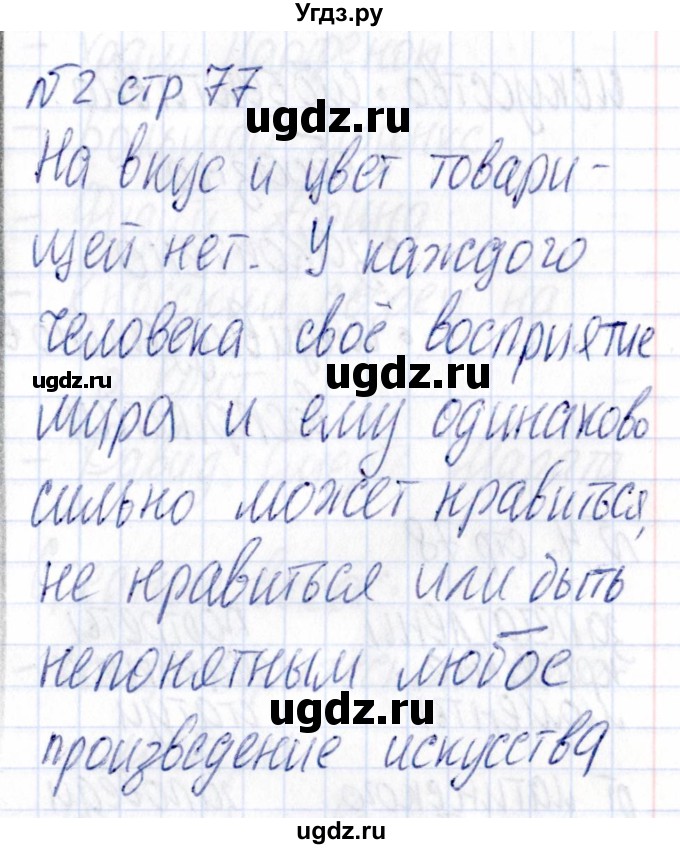 Угдз.ру
№2 стр 77
ugdz.ru
На вкус и цвет товари-
щей нет. У каждого
человека своё восприятие
ugdz.ru
ugdz.ru
мира и ему одинаково
сильно может нравиться,
не нравиться или быть
непонятным любое
ugdz.ru
произведение искусства
ugdz.ru